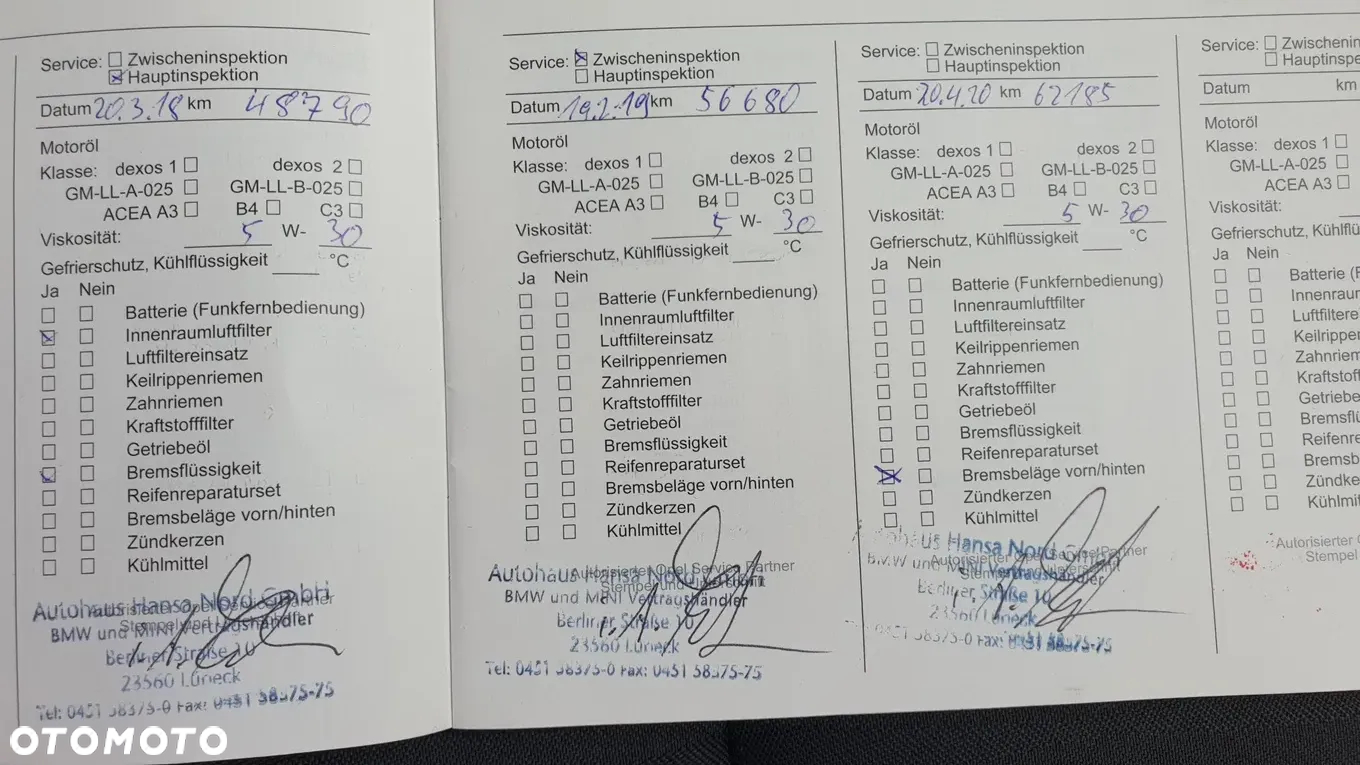 Service: Zwischeninspektion
Hauptinspektion
Datum 20.3.18 km 48790
Motoröl
Klasse: dexos 1 dexos 2
GM-LL-A-025 GM-LL-B-025
ACEA A3 B4 C3
Viskosität: 5 W- 30
Gefrierschutz, Kühlflüssigkeit °C
Ja Nein
Batterie (Funkfernbedienung)
Innenraumluftfilter
Luftfiltereinsatz
Keilrippenriemen
Zahnriemen
Kraftstofffilter
Getriebeöl
Bremsflüssigkeit
Reifenreparaturset
Bremsbeläge vorn/hinten
Zündkerzen
Kühlmittel
Autohaus Hansa Nord GmbH
BMW und MINI Vertragshändler
Berliner Straße 10
23560 Lübeck
Tel: 0451 58375-0 Fax: 0451 58375-75
Service: Zwischeninspektion
Hauptinspektion
Datum 19.2.19 km 56680
Motoröl
Klasse: dexos 1 dexos 2
GM-LL-A-025 GM-LL-B-025
ACEA A3 B4 C3
Viskosität: 5 W- 30
Gefrierschutz, Kühlflüssigkeit °C
Ja Nein
Batterie (Funkfernbedienung)
Innenraumluftfilter
Luftfiltereinsatz
Keilrippenriemen
Zahnriemen
Kraftstofffilter
Getriebeöl
Bremsflüssigkeit
Reifenreparaturset
Bremsbeläge vorn/hinten
Zündkerzen
Kühlmittel
Autorisierter Opel Service Partner
Stempel und Unterschrift
Autohaus Hansa Nord GmbH
BMW und MINI Vertragshändler
Berliner Straße 10
23560 Lübeck
Tel: 0451 58375-0 Fax: 0451 58375-75
Service: Zwischeninspektion
Hauptinspektion
Datum 20.4.20 km 62185
Motoröl
Klasse: dexos 1 dexos 2
GM-LL-A-025 GM-LL-B-025
ACEA A3 B4 C3
Viskosität: 5 W- 30
Gefrierschutz, Kühlflüssigkeit °C
Ja Nein
Batterie (Funkfernbedienung)
Innenraumluftfilter
Luftfiltereinsatz
Keilrippenriemen
Zahnriemen
Kraftstofffilter
Getriebeöl
Bremsflüssigkeit
Reifenreparaturset
Bremsbeläge vorn/hinten
Zündkerzen
Kühlmittel
Hansa Nord
Autorisierter Opel Service Partner
BMW und MINI Vertragshändler
Berliner Straße 10
23560 Lübeck
0451 58375-0 Fax: 0451 58375-75
Service: Zwischenin
Hauptinspe
Datum km
Motoröl
Klasse: dexos 1
GM-LL-A-025
ACEA A3
Viskosität:
Gefrierschutz, Kühlflü
Ja Nein
Batterie
Innenraum
Luftfiltere
Keilrippen
Zahnriem
Kraftstoff
Getriebe
Bremsflü
Reifenre
Bremsb
Zündke
Kühlmit
Autorisierter
Stempel
OTOMOTO